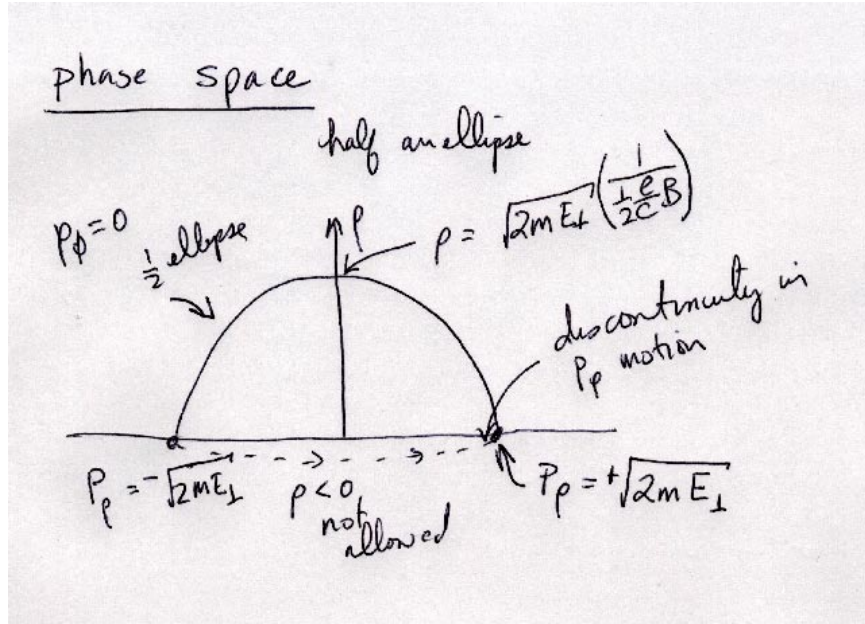 phase space
half an ellipse
P_ϕ = 0
½ ellipse
ρ
ρ = √(2mE_⊥) (1 / (½ e/c B))
discontinuity in
P_ρ motion
P_ρ = -√(2mE_⊥)
ρ < 0
not
allowed
P_ρ = +√(2mE_⊥)